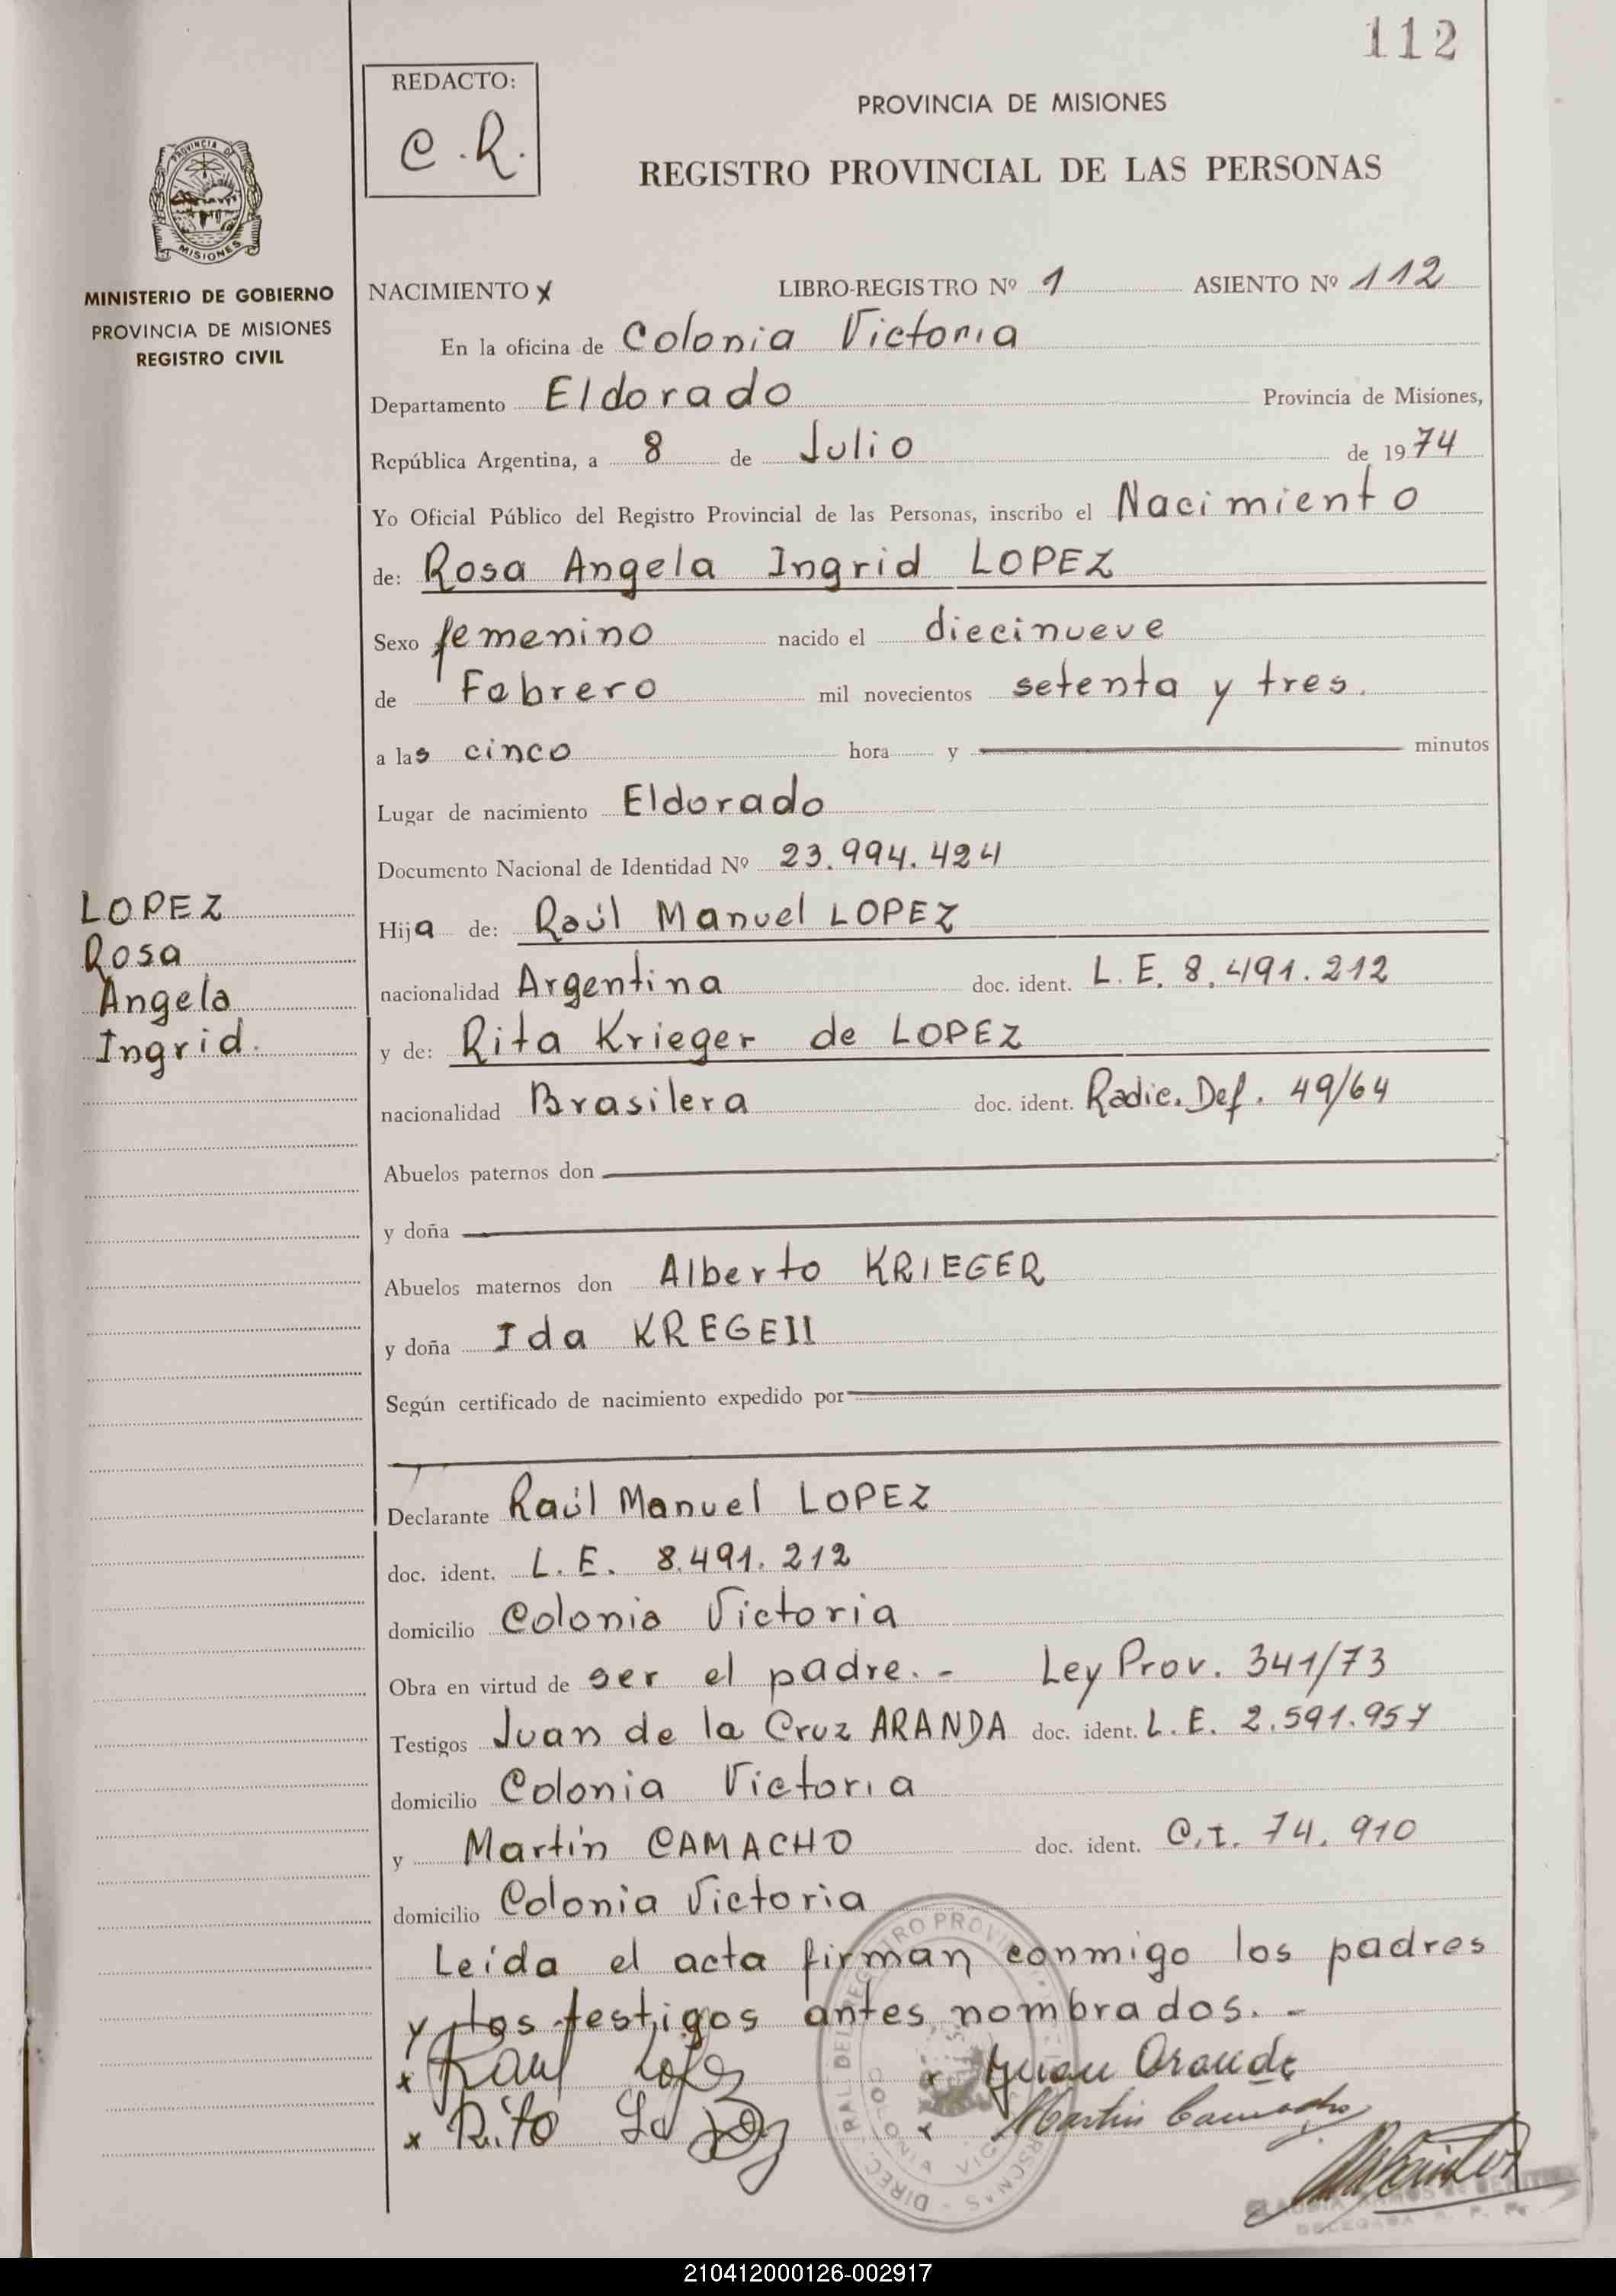 112
REDACTO:
C.R.
PROVINCIA DE MISIONES
REGISTRO PROVINCIAL DE LAS PERSONAS
PROVINCIA DE
MISIONES
MINISTERIO DE GOBIERNO
PROVINCIA DE MISIONES
REGISTRO CIVIL
NACIMIENTO X LIBRO-REGISTRO Nº 1 ASIENTO Nº 112
En la oficina de Colonia Victoria
Departamento Eldorado Provincia de Misiones,
República Argentina, a 8 de Julio de 1974
Yo Oficial Público del Registro Provincial de las Personas, inscribo el Nacimiento
de: Rosa Angela Ingrid LOPEZ
Sexo femenino nacido el diecinueve
de Febrero mil novecientos setenta y tres.
a las cinco hora y minutos
Lugar de nacimiento Eldorado
Documento Nacional de Identidad Nº 23.994.424
LOPEZ
Rosa
Angela
Ingrid.
Hija de: Raúl Manuel LOPEZ
nacionalidad Argentina doc. ident. L.E. 8.491.212
y de: Rita Krieger de LOPEZ
nacionalidad Brasilera doc. ident. Radic. Def. 49/64
Abuelos paternos don
y doña
Abuelos maternos don Alberto KRIEGER
y doña Ida
Según certificado de nacimiento expedido por
Declarante Raúl Manuel LOPEZ
doc. ident. L.E. 8.491.212
domicilio Colonia Victoria
Obra en virtud de ser el padre.- Ley Prov. 341/73
Testigos Juan de la Cruz ARANDA doc. ident. L.E. 2.591.957
domicilio Colonia Victoria
y Martín CAMACHO doc. ident. C.I. 74.910
domicilio Colonia Victoria
Leída el acta firman conmigo los padres
y los testigos antes nombrados.-
x Raul Lopez x Juan Arande
x Rita Lopez x Martin Camacho
210412000126-002917